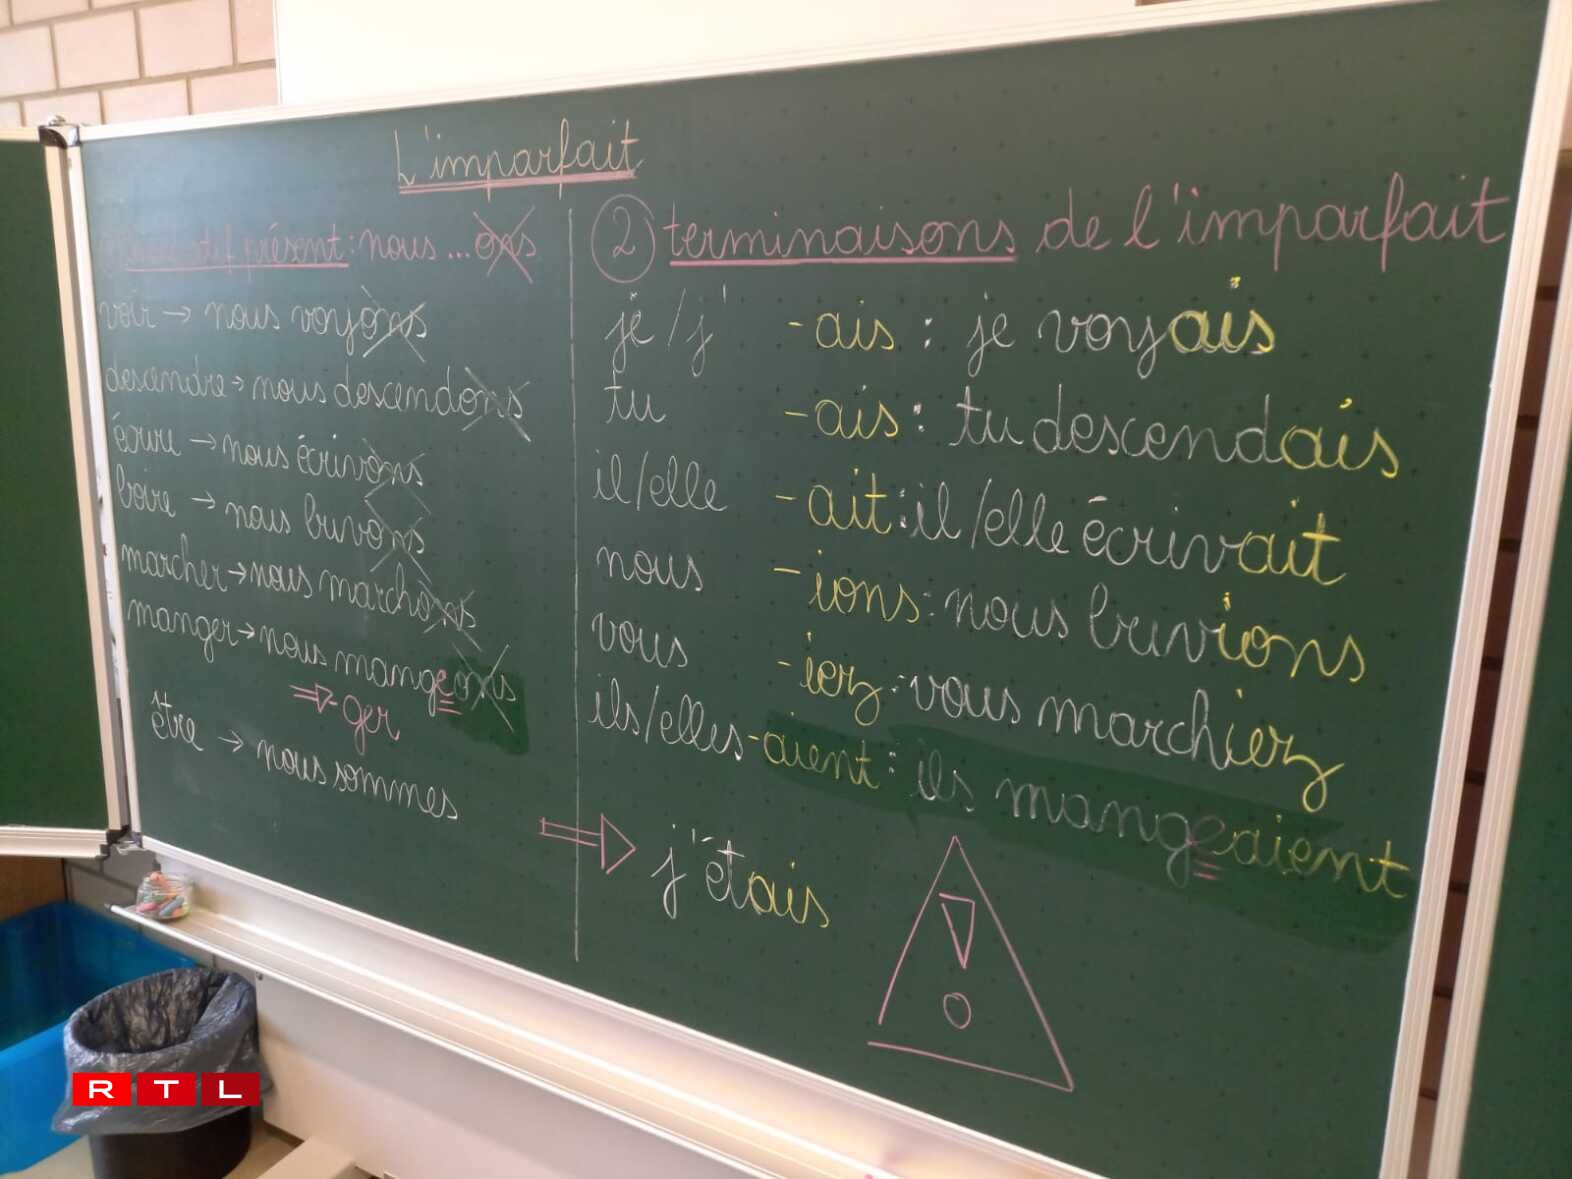 L'imparfait
présent : nous ... ons
voir → nous voyons
descendre → nous descendons
écrire → nous écrivons
boire → nous buvons
marcher → nous marchons
manger → nous mangeons
⇒ -ger
être → nous sommes
② terminaisons de l'imparfait
je / j' - ais : je voyais
tu - ais : tu descendais
il/elle - ait : il/elle écrivait
nous - ions : nous buvions
vous - iez : vous marchiez
ils/elles - aient : ils mangeaient
⇒ j'étais
!
RTL